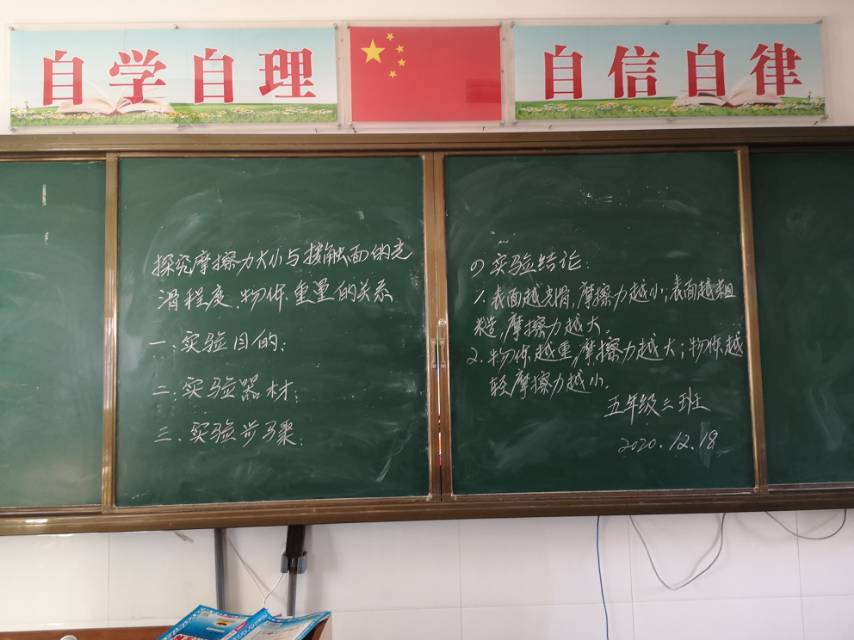 自学自理
自信自律
探究摩擦力大小与接触面的光
滑程度、物体重量的关系
一、实验目的:
二、实验器材:
三、实验步骤:
四实验结论:
1.表面越光滑,摩擦力越小;表面越粗
糙,摩擦力越大。
2.物体越重,摩擦力越大;物体越
轻摩擦力越小.
五年级三班
2020.12.18